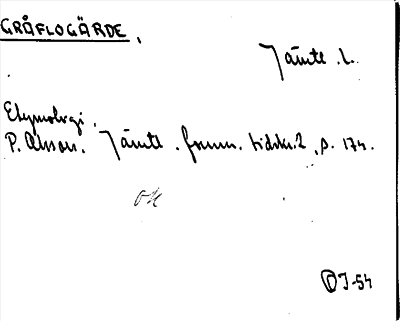 GRÅFLOGÄRDE.
Jämtl. L.
Etymologi.
P. Olsson. Jämtl. fornm. tidskr. 2, s. 174.
OK
D J-54